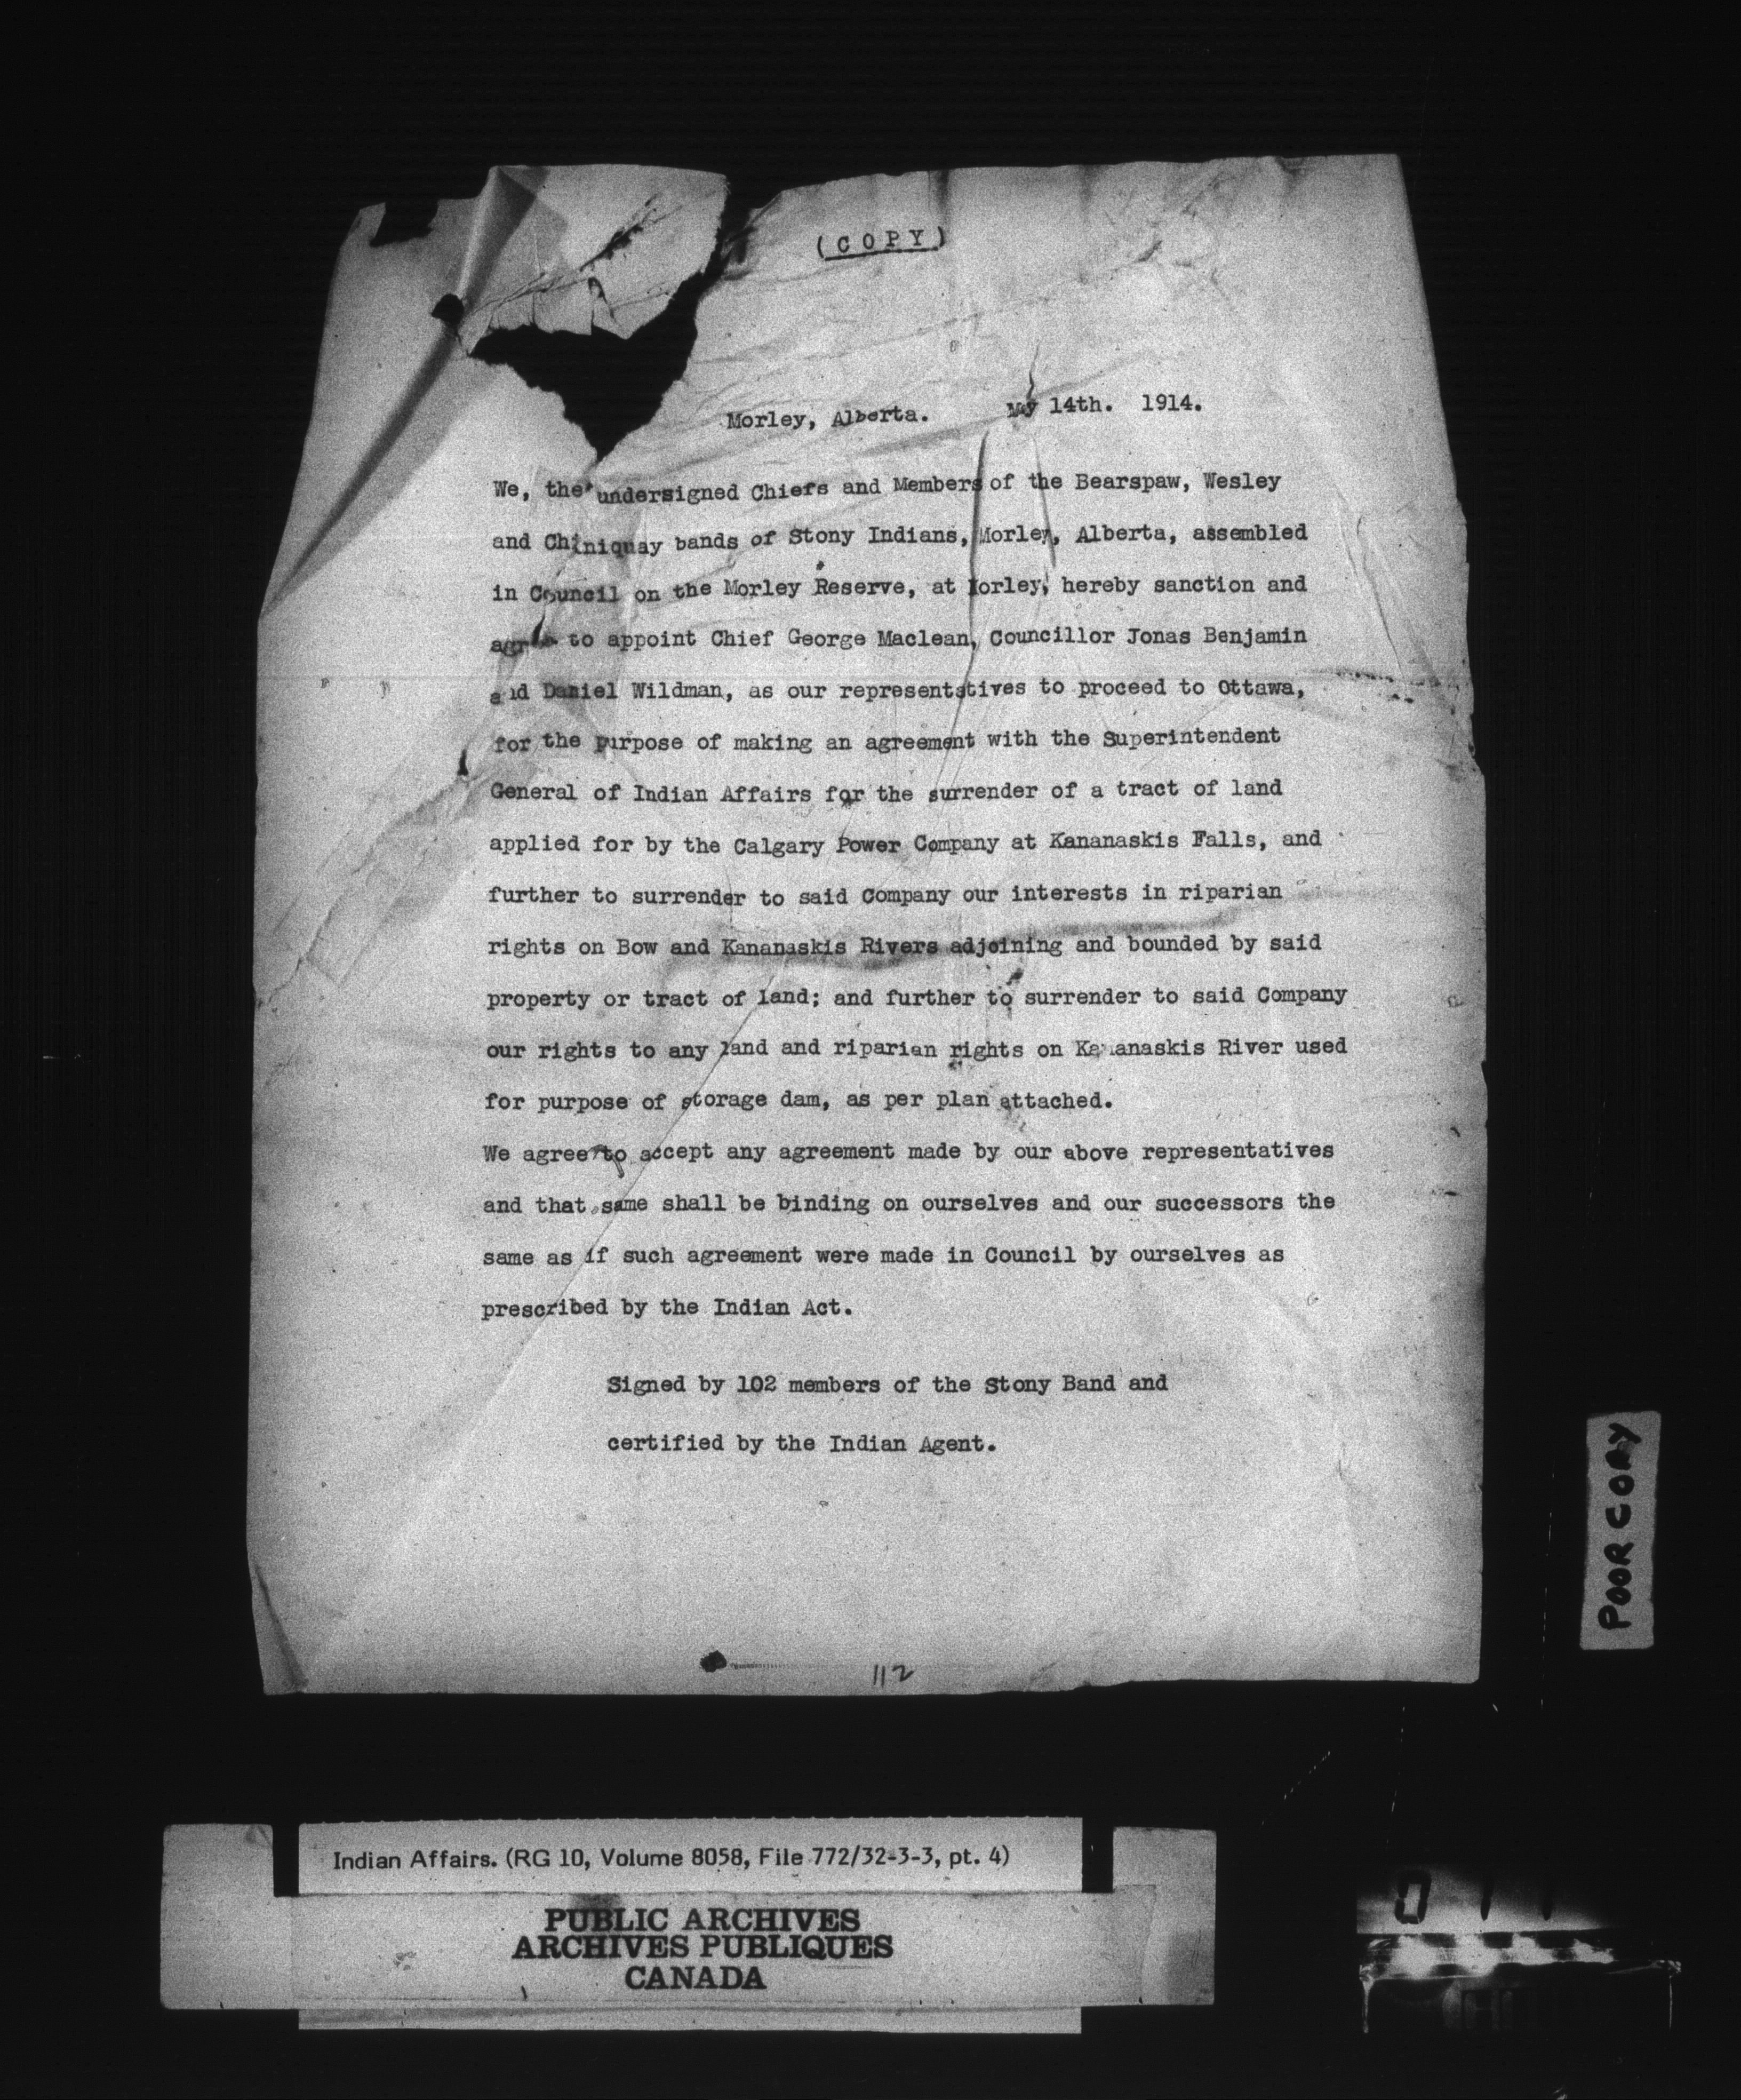 (COPY)
Morley, Alberta. May 14th. 1914.
We, the undersigned Chiefs and Members of the Bearspaw, Wesley
and Chiniquay bands of Stony Indians, Morley, Alberta, assembled
in Council on the Morley Reserve, at Morley, hereby sanction and
agree to appoint Chief George Maclean, Councillor Jonas Benjamin
and Daniel Wildman, as our representatives to proceed to Ottawa,
for the purpose of making an agreement with the Superintendent
General of Indian Affairs for the surrender of a tract of land
applied for by the Calgary Power Company at Kananaskis Falls, and
further to surrender to said Company our interests in riparian
rights on Bow and Kananaskis Rivers adjoining and bounded by said
property or tract of land; and further to surrender to said Company
our rights to any land and riparian rights on Kananaskis River used
for purpose of storage dam, as per plan attached.
We agree to accept any agreement made by our above representatives
and that same shall be binding on ourselves and our successors the
same as if such agreement were made in Council by ourselves as
prescribed by the Indian Act.
Signed by 102 members of the Stony Band and
certified by the Indian Agent.
112
POOR COPY
Indian Affairs. (RG 10, Volume 8058, File 772/32-3-3, pt. 4)
PUBLIC ARCHIVES
ARCHIVES PUBLIQUES
CANADA